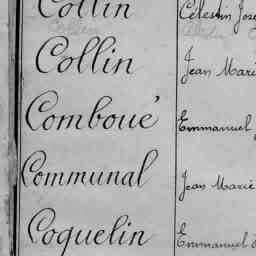 Collin Célestin José
Collin Jean Marie
Comboué Emmanuel
Communal Jean Marie
Coquelin Emmanuel